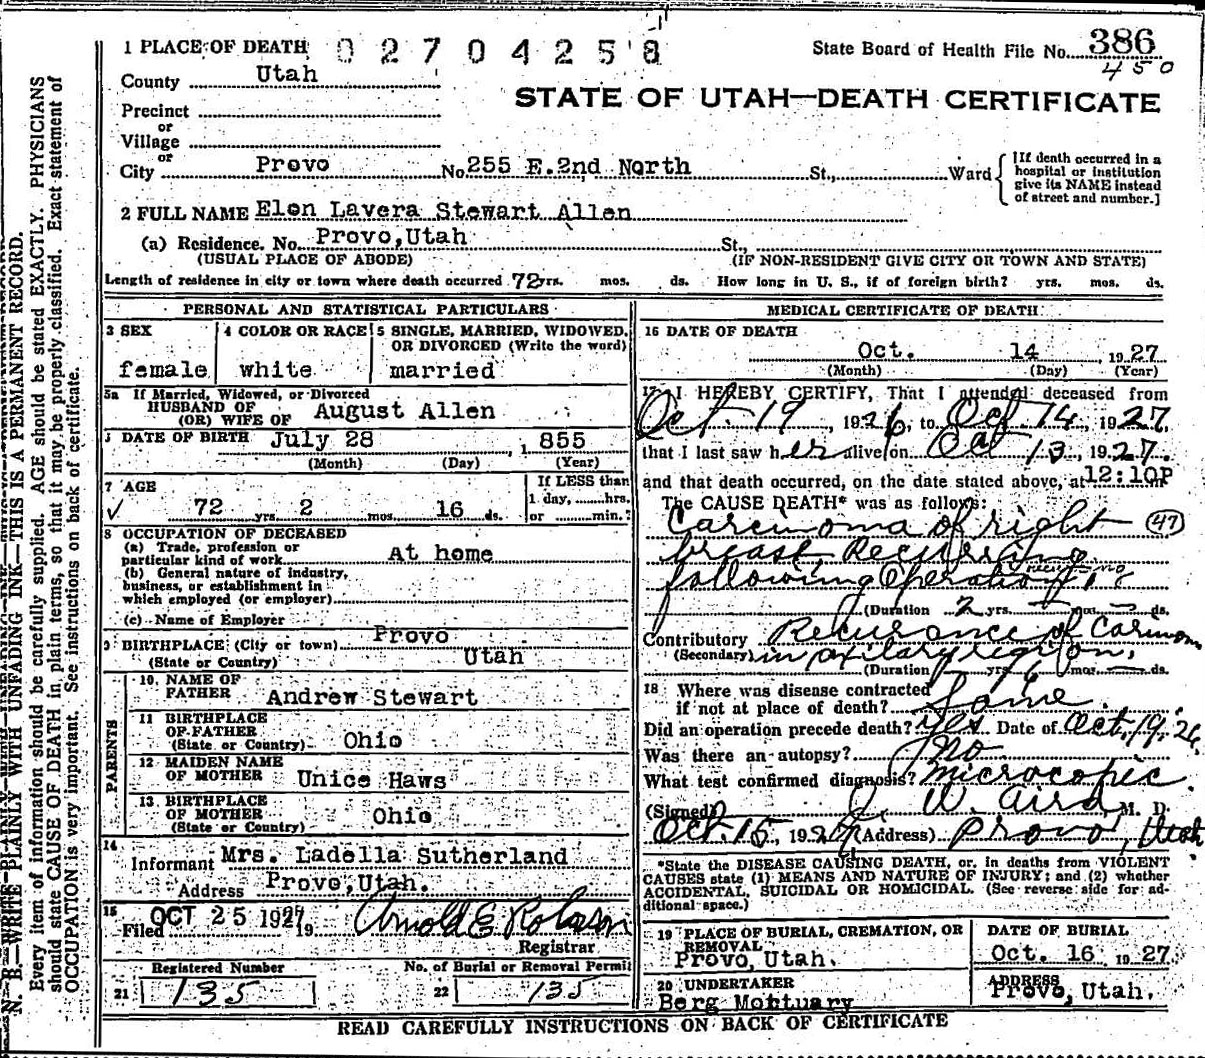 1 PLACE OF DEATH 02704258
State Board of Health File No. 386
450
County Utah
STATE OF UTAH—DEATH CERTIFICATE
Precinct
or
Village
or
City Provo No. 255 E. 2nd North St., Ward
[If death occurred in a
hospital or institution
give its NAME instead
of street and number.]
2 FULL NAME Elen Lavera Stewart Allen
(a) Residence. No. Provo, Utah St.,
(USUAL PLACE OF ABODE) (IF NON-RESIDENT GIVE CITY OR TOWN AND STATE)
Length of residence in city or town where death occurred 72 yrs. mos. ds. How long in U. S., if of foreign birth? yrs. mos. ds.
PERSONAL AND STATISTICAL PARTICULARS
3 SEX
female
4 COLOR OR RACE
white
5 SINGLE, MARRIED, WIDOWED,
OR DIVORCED (Write the word)
married
5a If Married, Widowed, or Divorced
HUSBAND OF
(OR) WIFE OF August Allen
DATE OF BIRTH July 28, 1855
(Month) (Day) (Year)
7 AGE
72 yrs. 2 mos. 16 ds.
If LESS than
1 day, ......hrs.
or ......min.?
8 OCCUPATION OF DECEASED
(a) Trade, profession or
particular kind of work At home
(b) General nature of industry,
business, or establishment in
which employed (or employer)
(c) Name of Employer
9 BIRTHPLACE (City or town) Provo
(State or Country) Utah
PARENTS
10. NAME OF
FATHER Andrew Stewart
11 BIRTHPLACE
OF FATHER
(State or Country) Ohio
12 MAIDEN NAME
OF MOTHER Unice Haws
13. BIRTHPLACE
OF MOTHER
(State or Country) Ohio
14
Informant Mrs. Ladella Sutherland
Address Provo, Utah.
15
Filed OCT 25 1927 19 Arnold E Robison
Registrar
Registered Number
21 135
No. of Burial or Removal Permit
22 135
MEDICAL CERTIFICATE OF DEATH
16 DATE OF DEATH
Oct. 14, 1927
(Month) (Day) (Year)
17 I HEREBY CERTIFY, That I attended deceased from
Oct. 19, 1926, to Oct 14, 1927,
that I last saw her alive on Oct 13, 1927.
and that death occurred, on the date stated above, at 12:10P
The CAUSE DEATH* was as follows:
Carcinoma of right (47)
breast Recurring
following Operation
(Duration 2 yrs. — mos. — ds.
Contributory Recurance of Carinoma
(Secondary) in axilary region.
(Duration yrs. 6 mos. — ds.
18 Where was disease contracted
if not at place of death? Same
Did an operation precede death? yes Date of Oct. 19. 26.
Was there an autopsy? No
What test confirmed diagnosis? Microcopic
(Signed) J. W. Aird, M. D.
Oct. 15, 1927 (Address) Provo, Utah
*State the DISEASE CAUSING DEATH, or, in deaths from VIOLENT
CAUSES state (1) MEANS AND NATURE OF INJURY; and (2) whether
ACCIDENTAL, SUICIDAL OR HOMICIDAL. (See reverse side for ad-
ditional space.)
19 PLACE OF BURIAL, CREMATION, OR
REMOVAL
Provo, Utah.
DATE OF BURIAL
Oct. 16 1927
20 UNDERTAKER
Berg Mortuary
ADDRESS
Provo, Utah.
READ CAREFULLY INSTRUCTIONS ON BACK OF CERTIFICATE
N. B.—WRITE PLAINLY WITH UNFADING INK—THIS IS A PERMANENT RECORD.
Every item of information should be carefully supplied. AGE should be stated EXACTLY. PHYSICIANS
should state CAUSE OF DEATH in plain terms, so that it may be properly classified. Exact statement of
OCCUPATION is very important. See instructions on back of certificate.